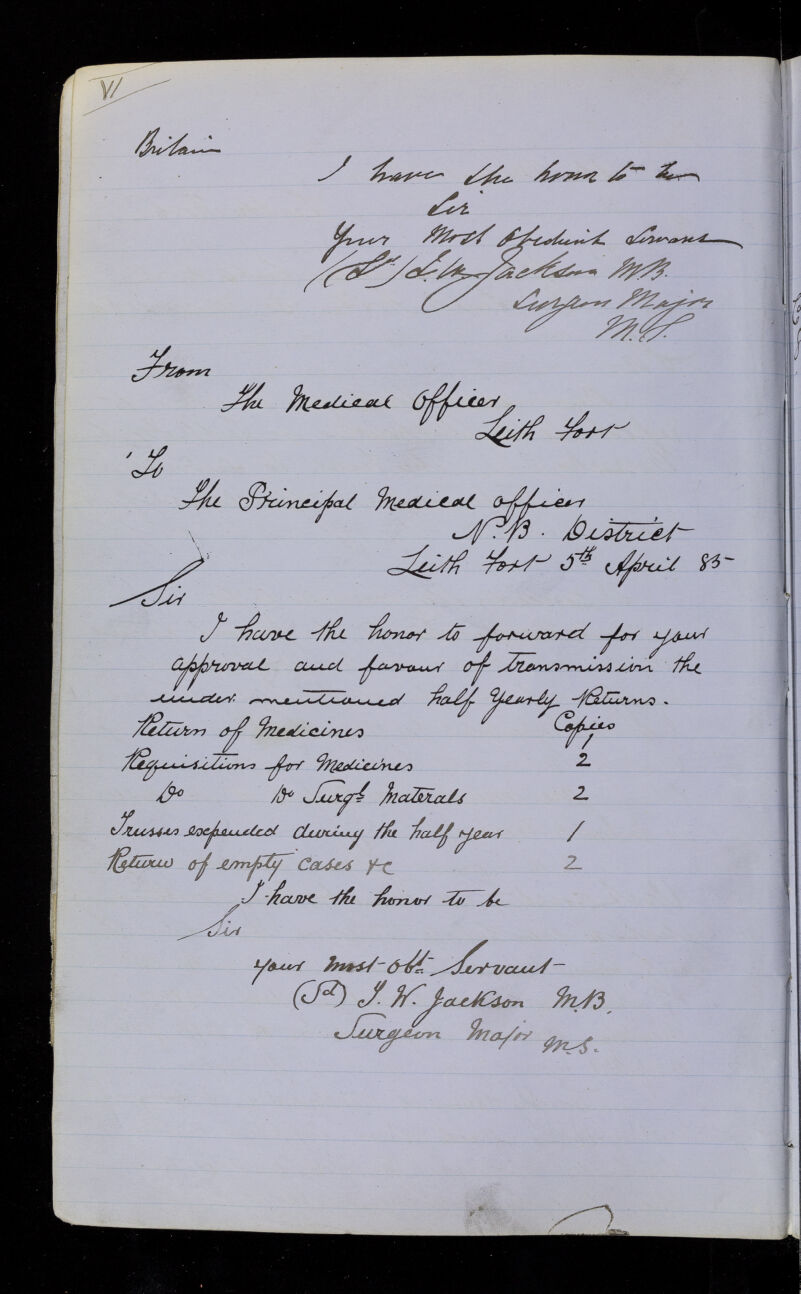 VI
Britain
I have the honor to be
Sir
Your Most Obedient Servant
(Sd) T. W. Jackson M.B.
Surgeon Major
M.S.
From
The Medical Officer
Leith Fort
To
The Principal Medical Officer
N.B. District
Leith Fort 5th April 85
Sir
I have the honor to forward for your
approval and favour of transmission the
under mentioned half yearly Returns.
Copies
Return of Medicines 1
Requisitions for Medicines 2
Do Do Surgl Materals 2
Trusses expended during the half year 1
Return of empty cases &c 2
I have the honor to be
Sir
your most obt Servant
(Sd) T. W. Jackson M.B.
Surgeon Major M.S.